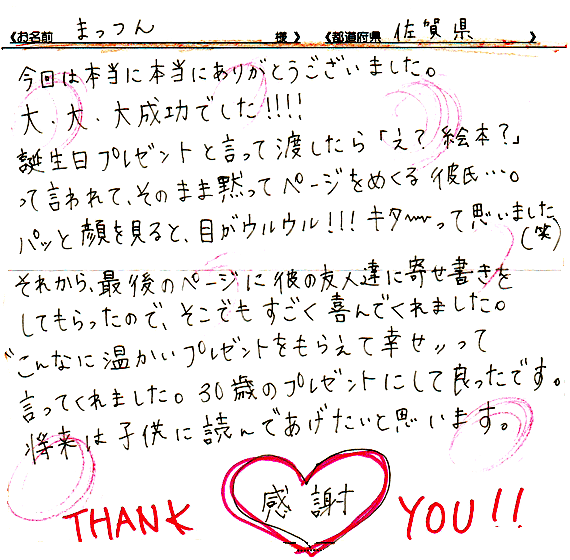 《お名前 まっつん 様》 《都道府県 佐賀県 》
今回は本当に本当にありがとうございました。
大・大・大成功でした!!!!
誕生日プレゼントと言って渡したら「え？絵本？」
って言われて、そのまま黙ってページをめくる彼氏…。
パッと顔を見ると、目がウルウル!!! キタ〜って思いました
(笑)
それから、最後のページに彼の友人達に寄せ書きを
してもらったので、そこでもすごく喜んでくれました。
"こんなに温かいプレゼントをもらえて幸せ〃って
言ってくれました。30歳のプレゼントにして良ったです。
将来は子供に読んであげたいと思います。
THANK 感謝 YOU!!